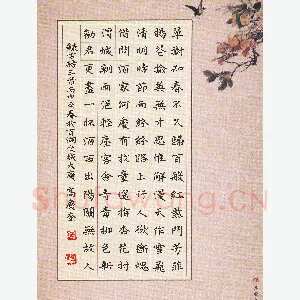 草樹知春不久歸百般紅紫鬥芳菲
楊花榆莢無才思惟解漫天作雪飛
清明時節雨紛紛路上行人欲斷魂
借問酒家何處有牧童遙指杏花村
渭城朝雨浥輕塵客舍青青柳色新
勸君更盡一杯酒西出陽關無故人
錄古詩三首丙申之春於百湖之城大慶高慶奎